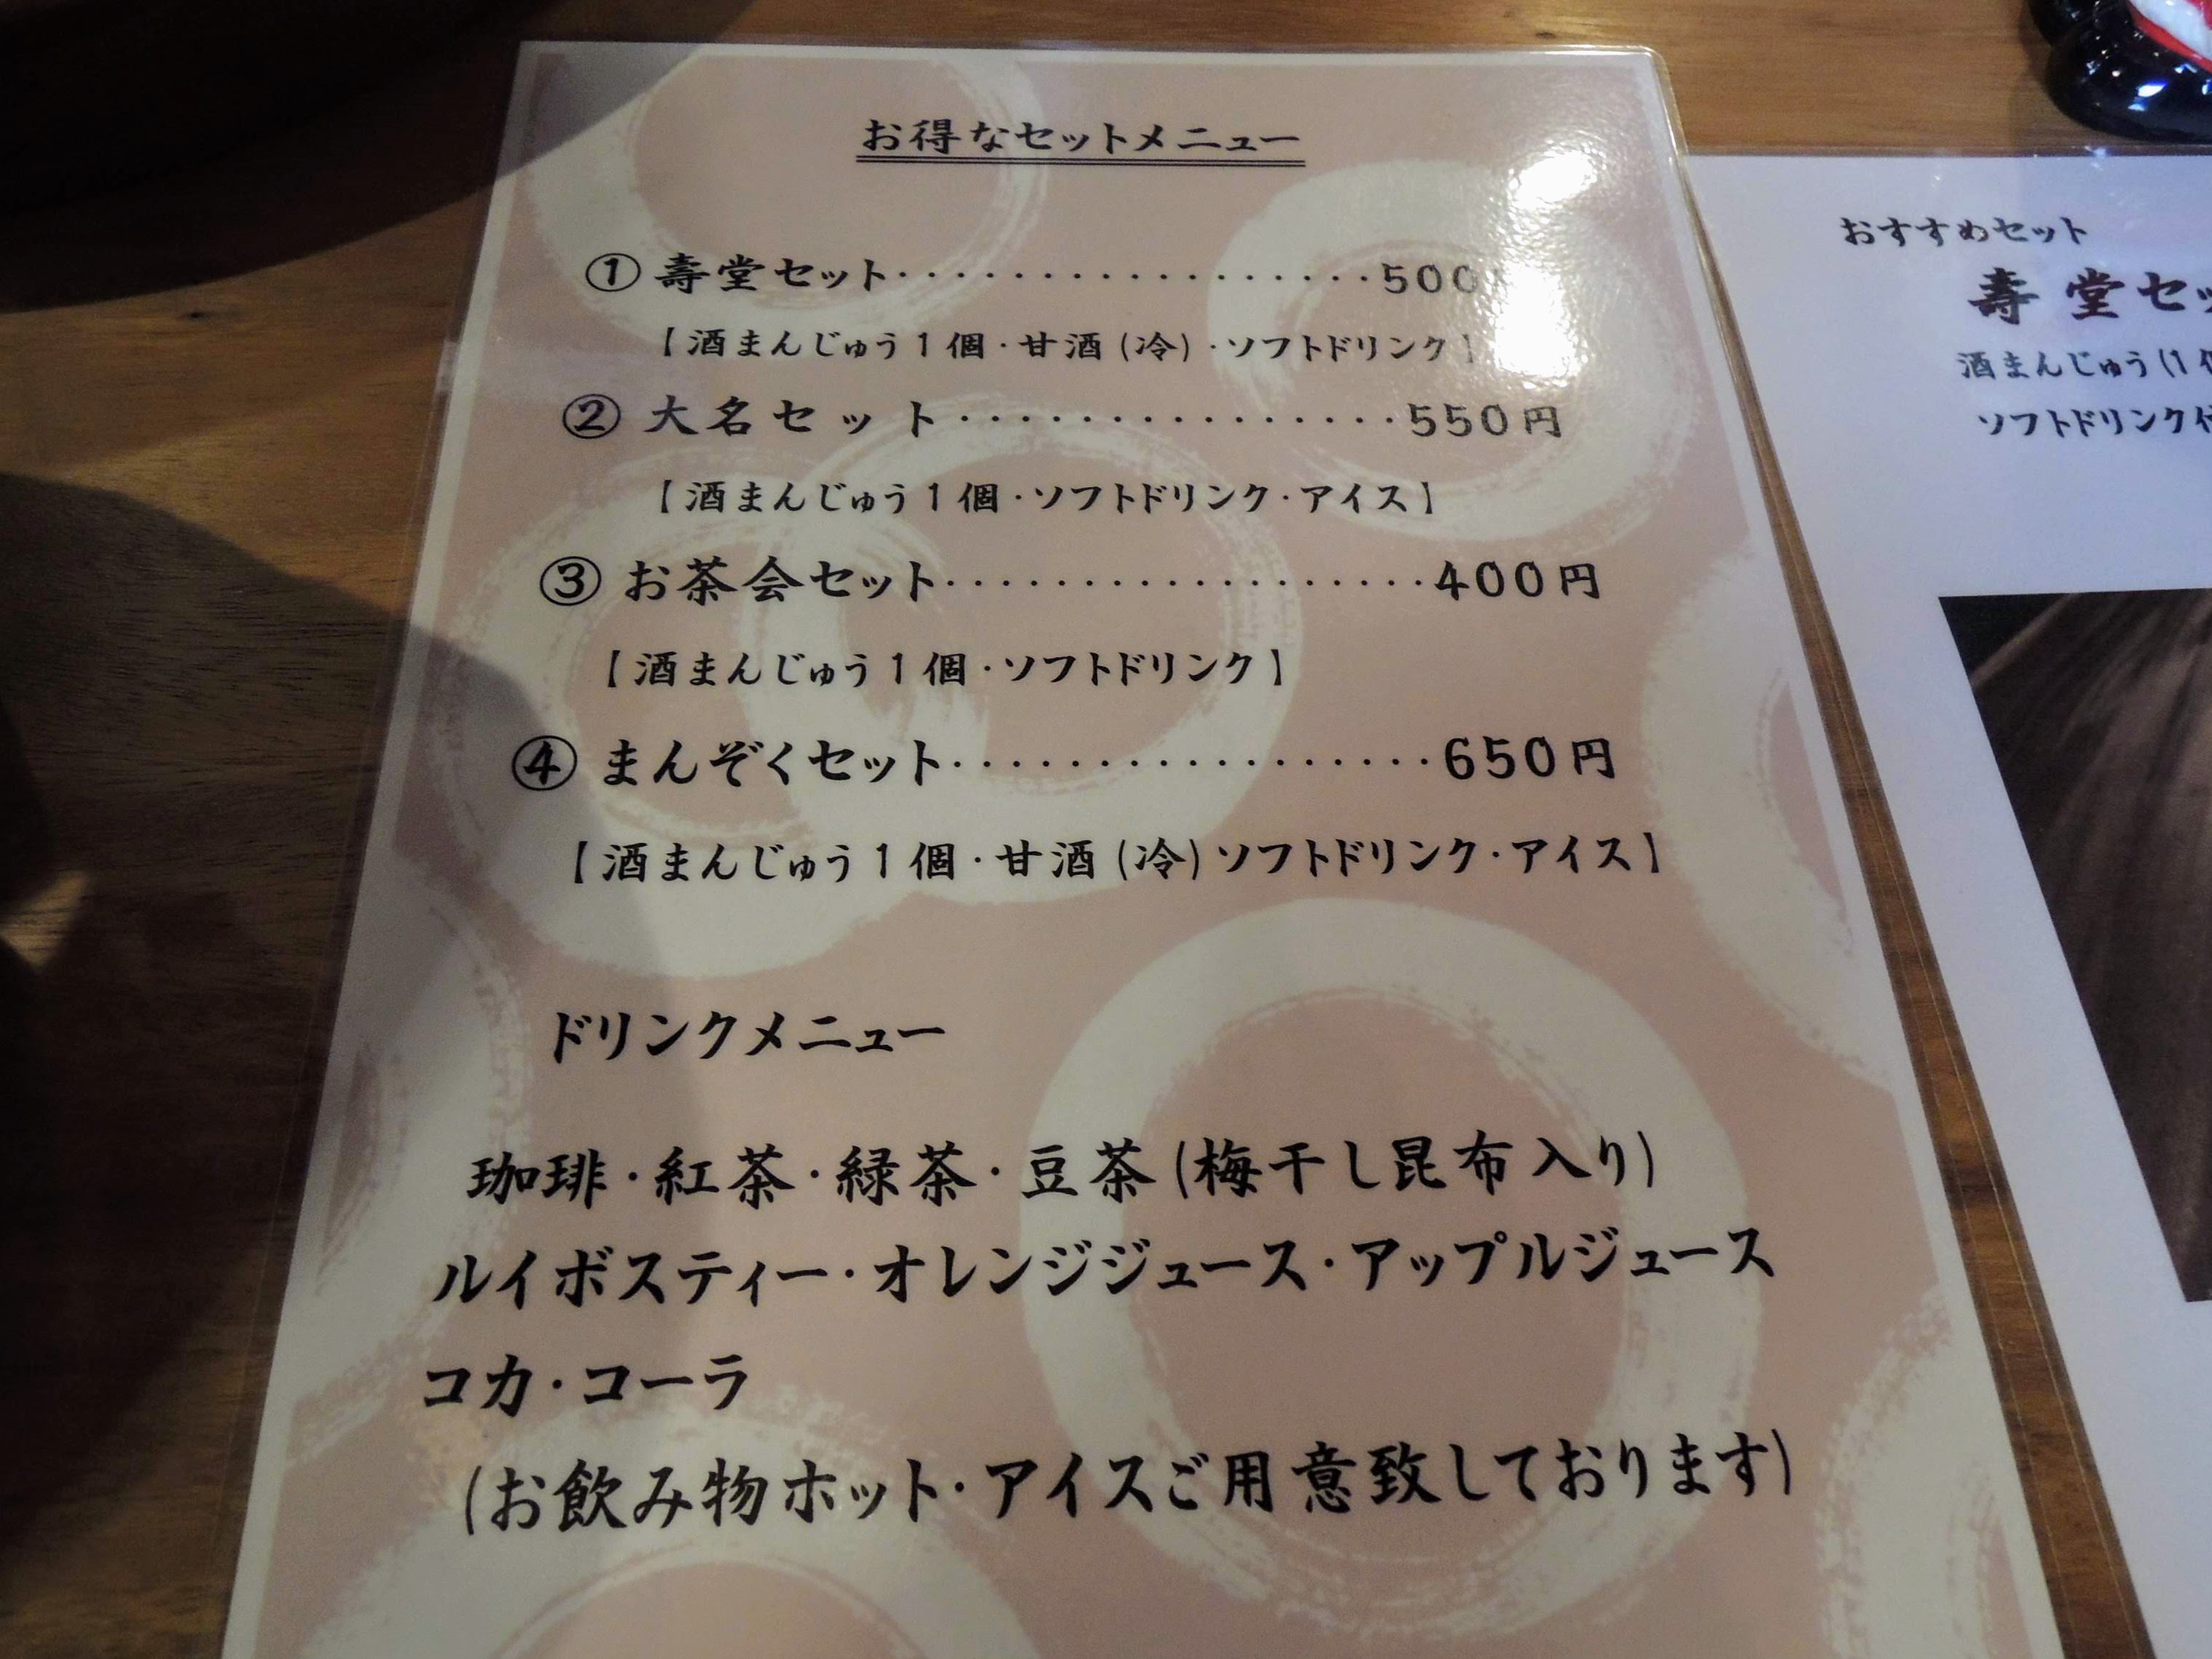 お得なセットメニュー
①壽堂セット··················500
【酒まんじゅう1個·甘酒(冷)·ソフトドリンク】
②大名セット················550円
【酒まんじゅう1個·ソフトドリンク·アイス】
③お茶会セット··················400円
【酒まんじゅう1個·ソフトドリンク】
④まんぞくセット·················650円
【酒まんじゅう1個·甘酒(冷)ソフトドリンク·アイス】
ドリンクメニュー
珈琲·紅茶·緑茶·豆茶(梅干し昆布入り)
ルイボスティー·オレンジジュース·アップルジュース
コカ·コーラ
(お飲み物ホット·アイスご用意致しております)
おすすめセット
壽堂セッ
酒まんじゅう(1
ソフトドリンク